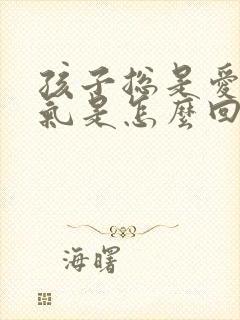 孩子總是愛
氣是怎麼回
海曙